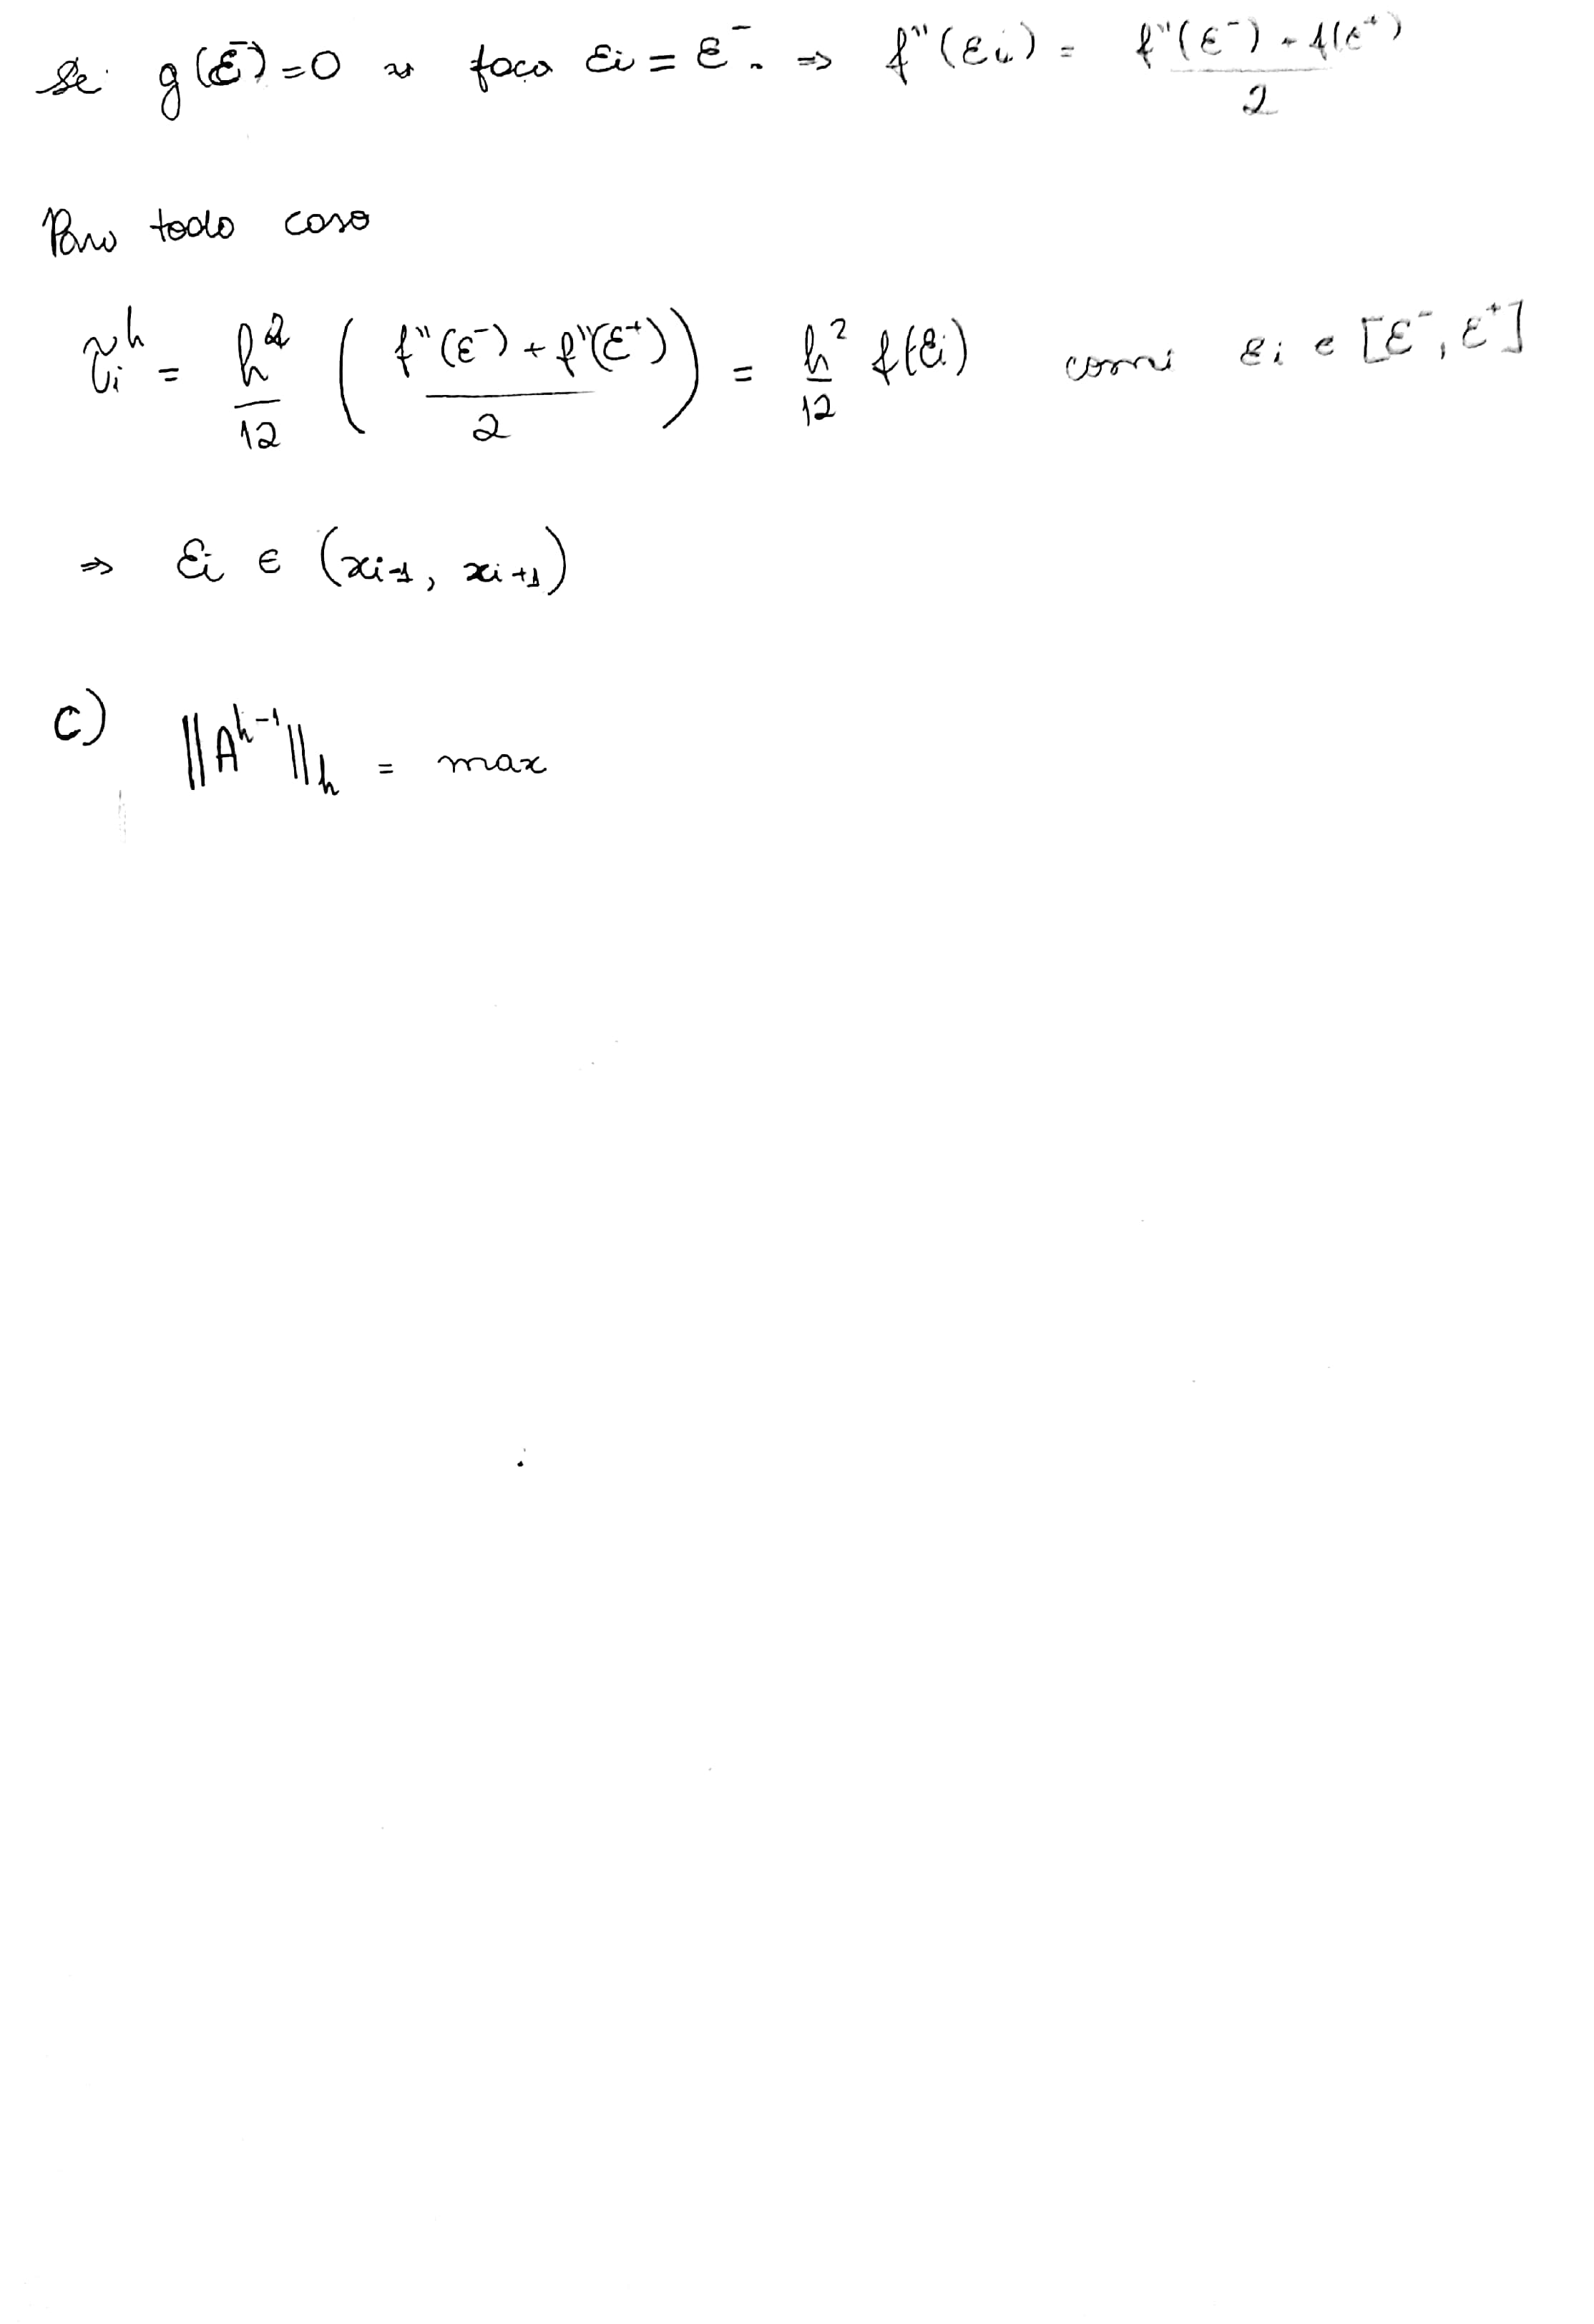 Se g(ε⁻)=0 → faço εi = ε⁻. ⇒ f''(εi) = (f''(ε⁻) - f(ε⁺))/2
Para todo caso
τ̃ᵢʰ = h²/12 ( (f''(ε⁻) + f''(ε⁺))/2 ) = h²/12 f(εi) com εi ∈ [ε⁻, ε⁺]
⇒ εi ∈ (xi-1, xi+1)
c) ||A^{h^{-1}}||_h = max